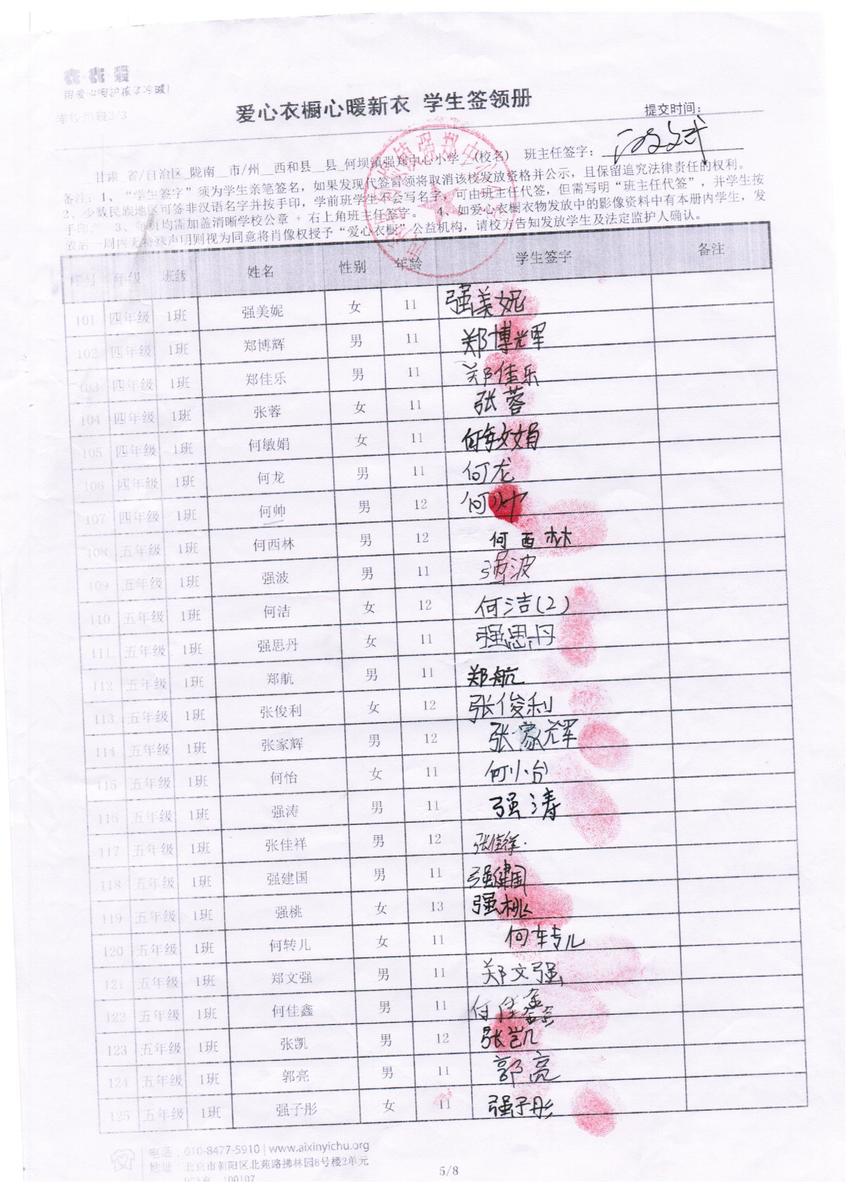 衣衣爱
用爱心呵护孩子冷暖！
爱心衣橱心暖新衣 学生签领册
提交时间：
甘肃 省/自治区 陇南 市/州 西和县 县 何坝镇强郑中心小学 （校名） 班主任签字：
备注：1、“学生签字”须为学生亲笔签名，如果发现代签冒领将取消该校发放资格并公示，且保留追究法律责任的权利。
2、少数民族地区可签非汉语名字并按手印，学前班学生不会写名字，可由班主任代签，但需写明“班主任代签”，并学生按
手印。 3、每页均需加盖清晰学校公章 + 右上角班主任签字。 4、如爱心衣橱衣物发放中的影像资料中有本册内学生，发
放后一周内无特殊声明则视为同意将肖像权授予“爱心衣橱”公益机构，请校方告知发放学生及法定监护人确认。
年级 班级 姓名 性别 年龄 学生签字 备注
101 四年级 1班 强美妮 女 11 强美妮
102 四年级 1班 郑博辉 男 11 郑博辉
103 四年级 1班 郑佳乐 男 11 郑佳乐
104 四年级 1班 张蓉 女 11 张蓉
105 四年级 1班 何敏娟 女 11 何敏娟
106 四年级 1班 何龙 男 11 何龙
107 四年级 1班 何帅 男 12 何帅
108 五年级 1班 何西林 男 12 何西林
109 五年级 1班 强波 男 11 强波
110 五年级 1班 何洁 女 12 何洁(2)
111 五年级 1班 强思丹 女 11 强思丹
112 五年级 1班 郑航 男 11 郑航
113 五年级 1班 张俊利 女 12 张俊利
114 五年级 1班 张家辉 男 12 张家辉
115 五年级 1班 何怡 女 11 何怡
116 五年级 1班 强涛 男 11 强涛
117 五年级 1班 张佳祥 男 12 张佳祥
118 五年级 1班 强建国 男 11 强建国
119 五年级 1班 强桃 女 13 强桃
120 五年级 1班 何转儿 女 11 何转儿
121 五年级 1班 郑文强 男 11 郑文强
122 五年级 1班 何佳鑫 男 11 何佳鑫
123 五年级 1班 张凯 男 12 张凯
124 五年级 1班 郭亮 男 11 郭亮
125 五年级 1班 强子彤 女 11 强子彤
电话：010-8477-5910 | www.aixinyichu.org
地址：北京市朝阳区北苑路拂林园8号楼2单元
100107
5/8